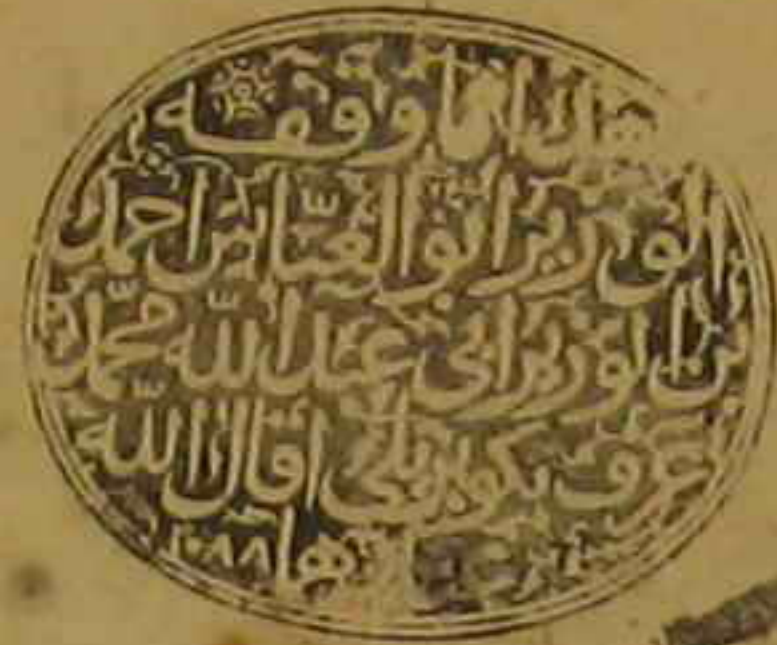 هذا ما وقفه
الوزير ابو العباس احمد
بن الوزير ابي عبد الله محمد
عرف بكوبريلي اقال الله
ها ١٠٨٨